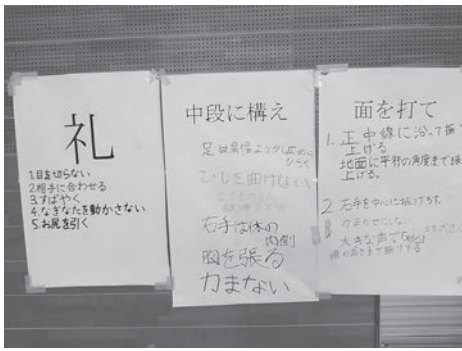 礼
1.目を切らない
2.相手に合わせる
3.すばやく
4.なぎなたを動かさない
5.お尻を引く
中段に構え
足は肩幅より少し広めに
ひらく
ひじを曲げない
右手は体の
内側
胸を張る
力まない
面を打て
1. 正中線に沿って振
上げる
地面に平行の角度まで振
上げる。
2 右手を中心に
力まかせにしない
大きな声で